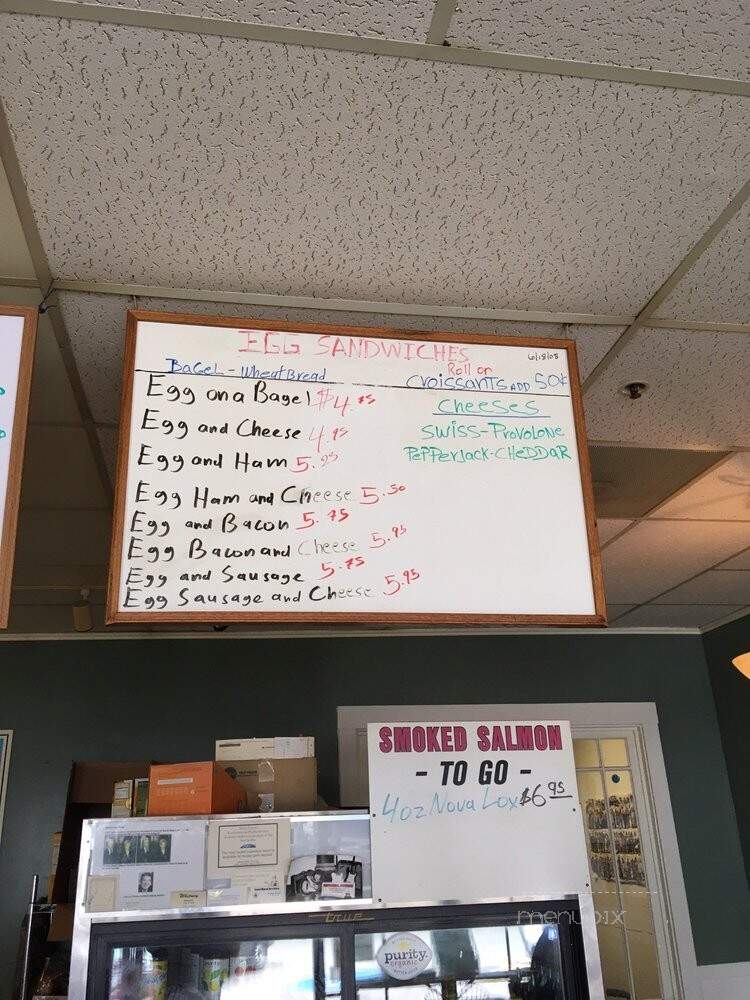 EGG SANDWICHES
6/18/08
Bagel - Wheat Bread
Roll or
Croissants ADD 50¢
Egg on a Bagel $4.
Egg and Cheese 4.95
Egg and Ham 5.25
Egg Ham and Cheese 5.50
Egg and Bacon 5.75
Egg Bacon and Cheese 5.95
Egg and Sausage 5.75
Egg Sausage and Cheese 5.95
Cheeses
SWISS-PROVOLONE
PEPPERJACK-CHEDDAR
SMOKED SALMON
- TO GO -
4oz Nova Lox $6 95
true
purity.
organic
menupix